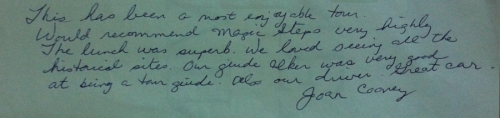 This has been a most enjoyable tour.
Would recommend Magic Steps very highly
The lunch was superb. We loved seeing all the
historical sites. Our guide Ulker was very good
at being a tour guide. Also our driver. Great car.
Joan Cooney